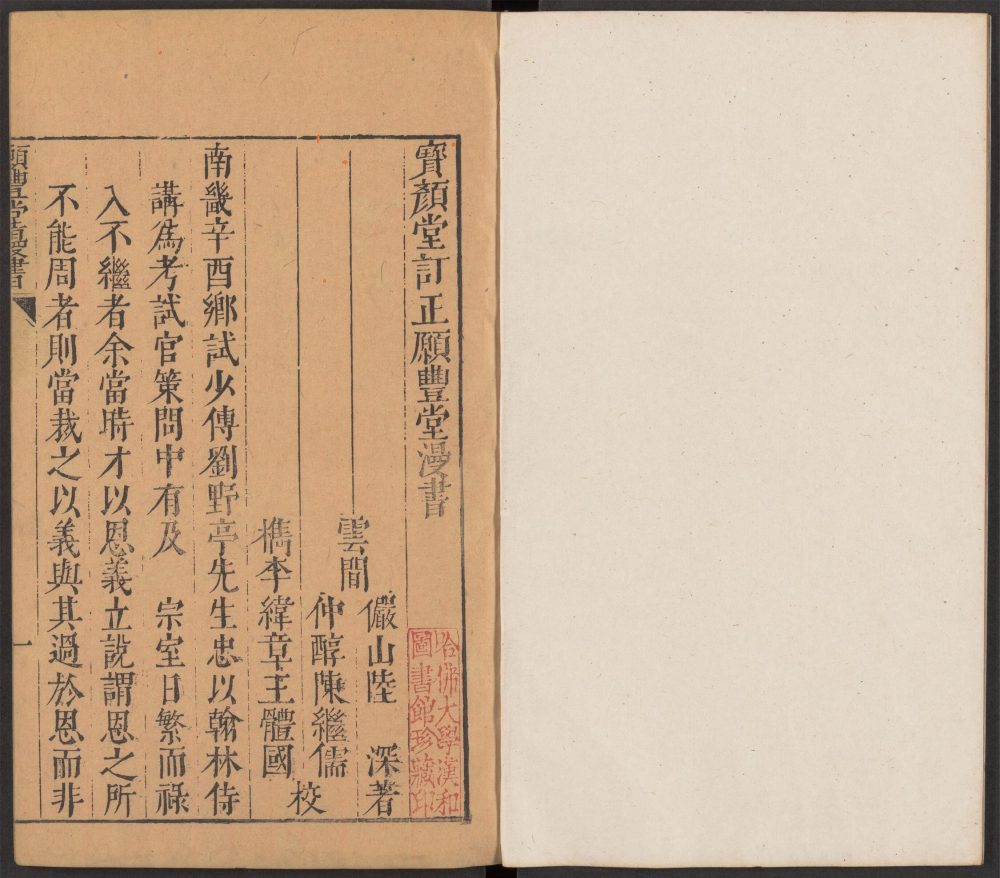 寳顏堂訂正願豐堂漫書
雲間
儼山陸 深著
仲醇陳繼儒
檇李緯章王體國
校
南畿辛酉鄉試少傅劉野亭先生忠以翰林侍
講為考試官策問中有及 宗室日繁而祿
入不繼者余當時才以恩義立說謂恩之所
不能周者則當裁之以義與其過於恩而非
願豐堂漫書
一
哈佛大學漢和
圖書館珍藏印